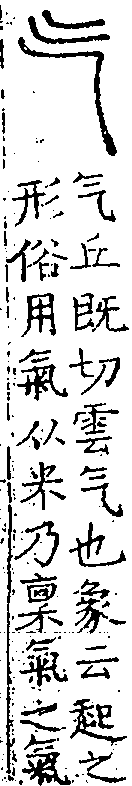 气
气丘既切雲气也象云起之
形俗用氣从米乃稟氣之氣